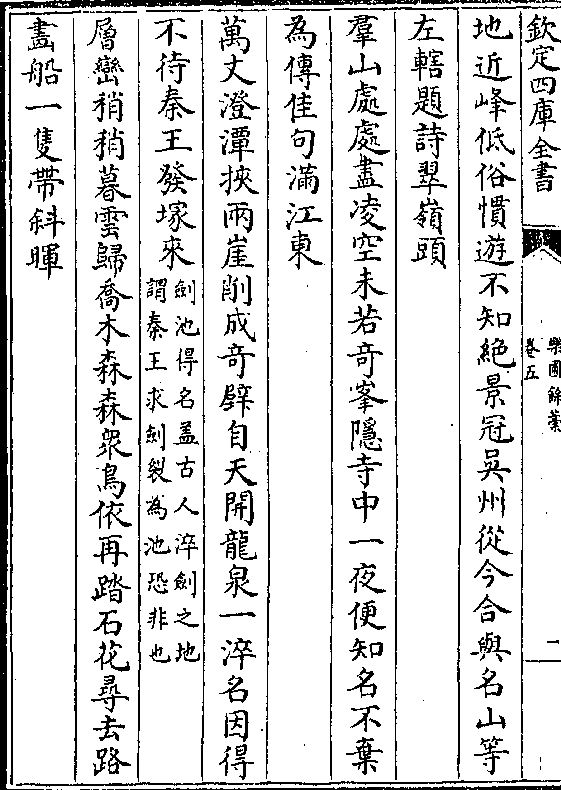 欽定四庫全書
樂圃餘藁
卷五
二
地近峰低俗慣遊不知絶景冠吳州從今合與名山等
左轄題詩翠嶺頭
羣山處處盡凌空未若竒峯隱寺中一夜便知名不棄
為傳佳句滿江東
萬丈澄潭挾兩崖削成竒壁自天開龍泉一淬名因得
不待秦王發塚來劍池得名葢古人淬劍之地
謂秦王求劍裂為池恐非也
層巒稍稍暮雲歸喬木森森衆鳥依再踏石花尋去路
畵船一隻帶斜暉